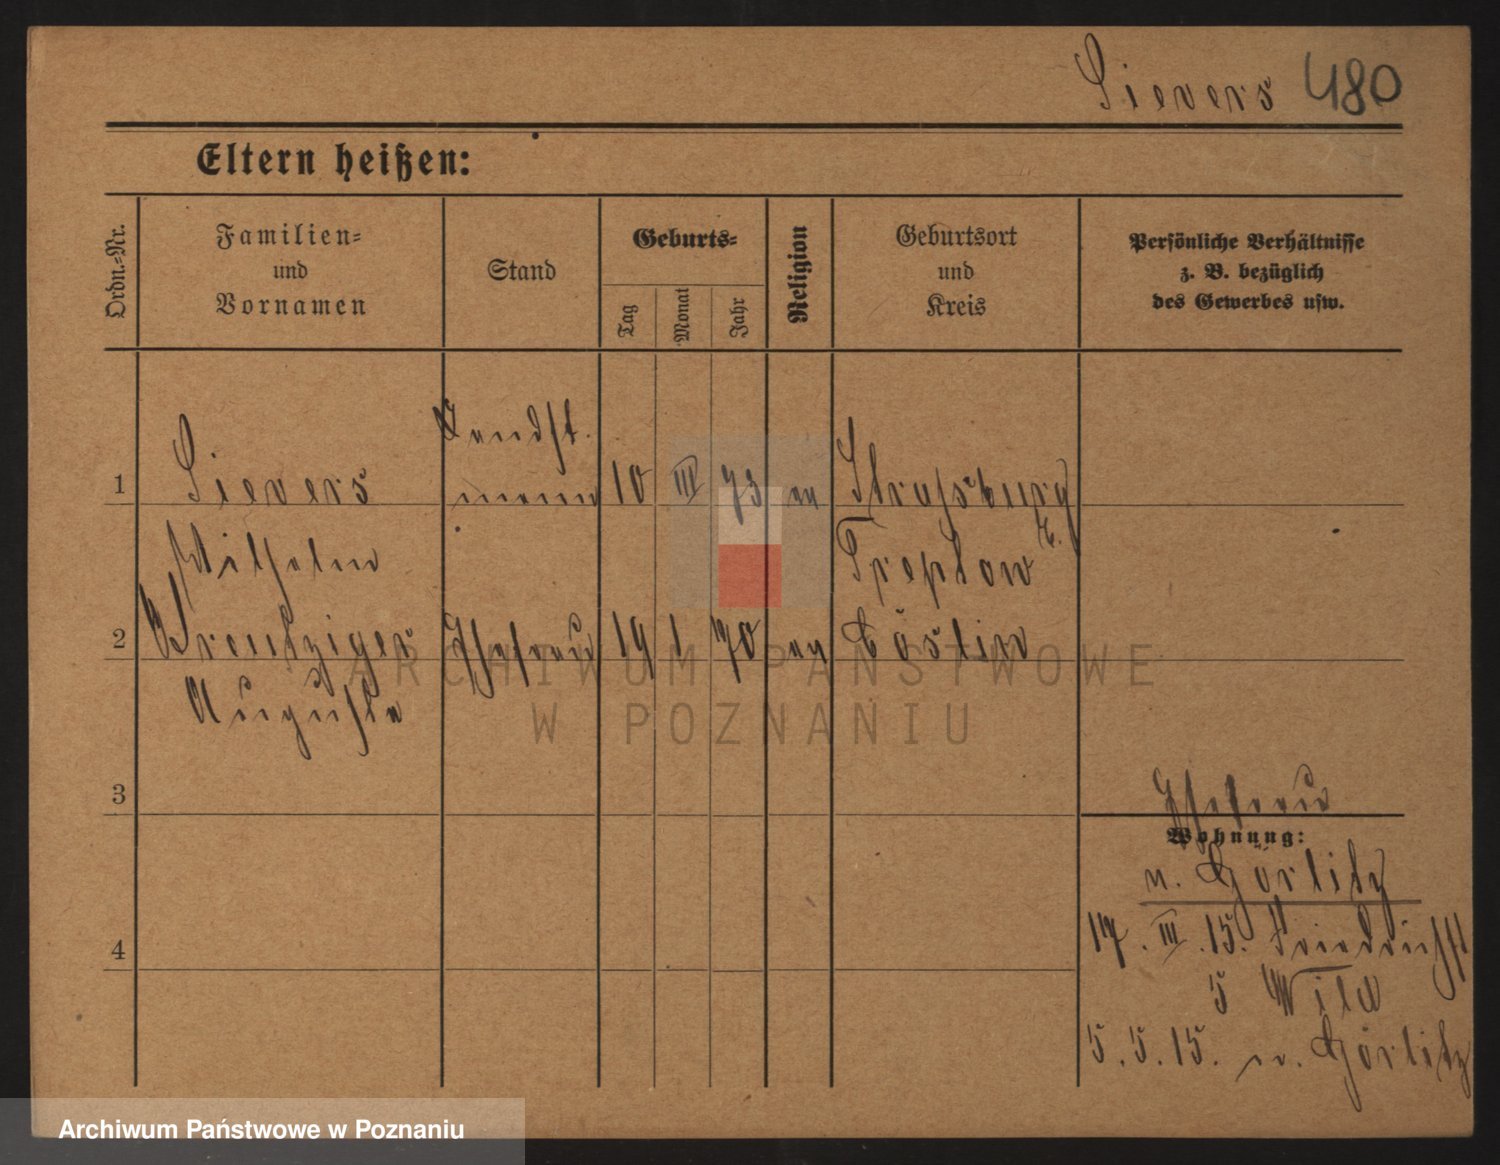 Sievers 480
Eltern heißen:
Ordn.-Nr.
Familien-
und
Vornamen
Stand
Geburts-
Tag
Monat
Jahr
Religion
Geburtsort
und
Kreis
Persönliche Verhältnisse
z. B. bezüglich
des Gewerbes usw.
Landst.
1 Sievers mann 10 III 73 ev Strassburg
Wilhelm Treptow
2 Kreutziger Ehefrau 19 1 70 ev Cöslin
Auguste
ARCHIWUM PAŃSTWOWE
W POZNANIU
3 Ehefrau
Wohnung:
n. Görlitz
17. III. 15.
4
5
5.5.15. n. Görlitz
Archiwum Państwowe w Poznaniu